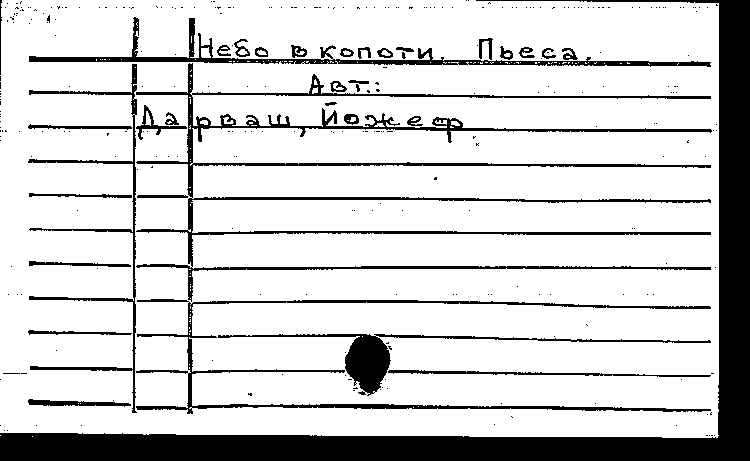 Небо в копоти. Пьеса.
Авт.:
Дарваш, Йожеф